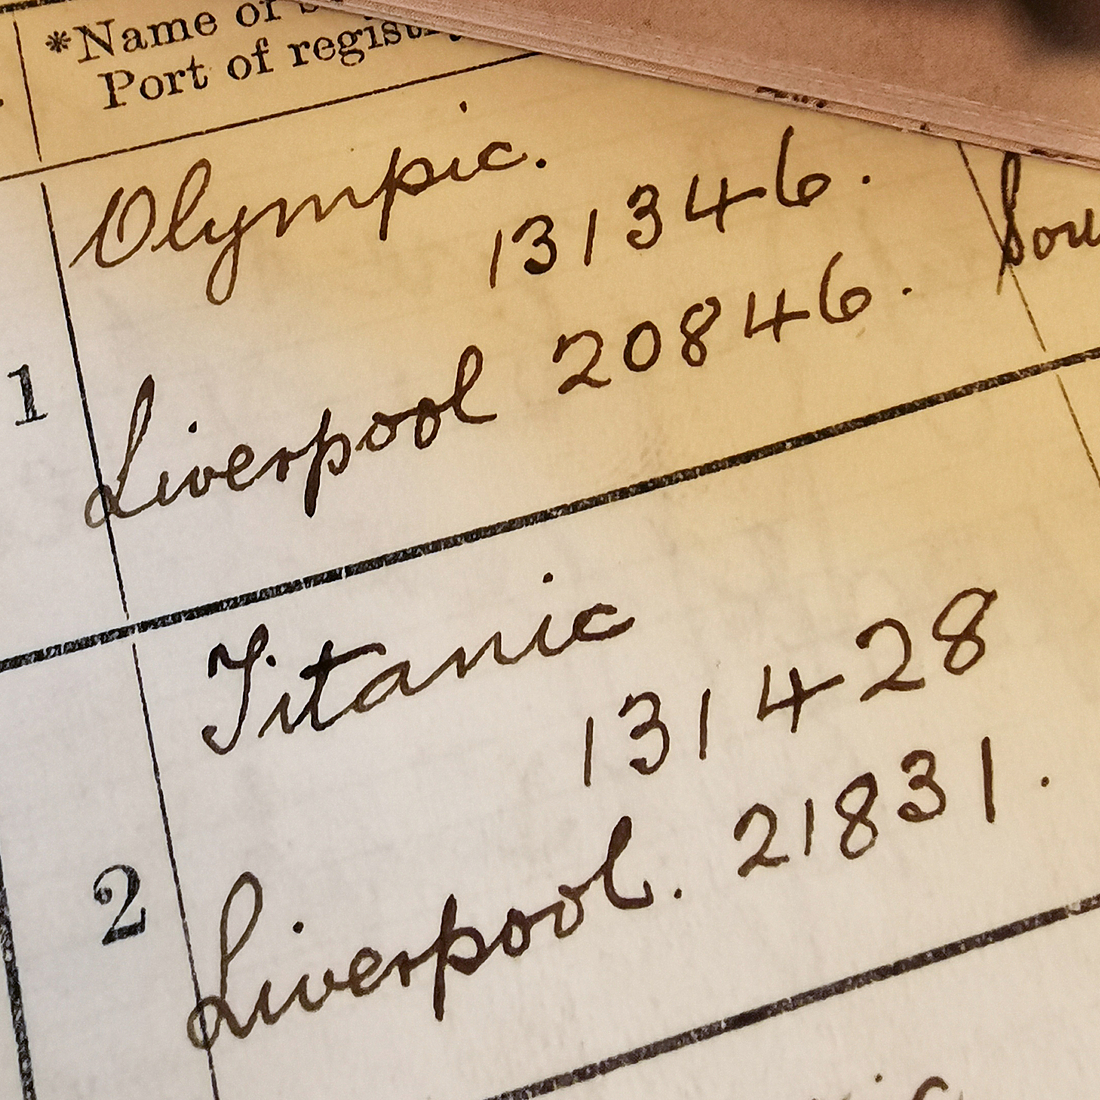 *Name of
Port of
Olympic.
131346.
1
Liverpool 20846.
Titanic
131428
2
Liverpool. 21831.